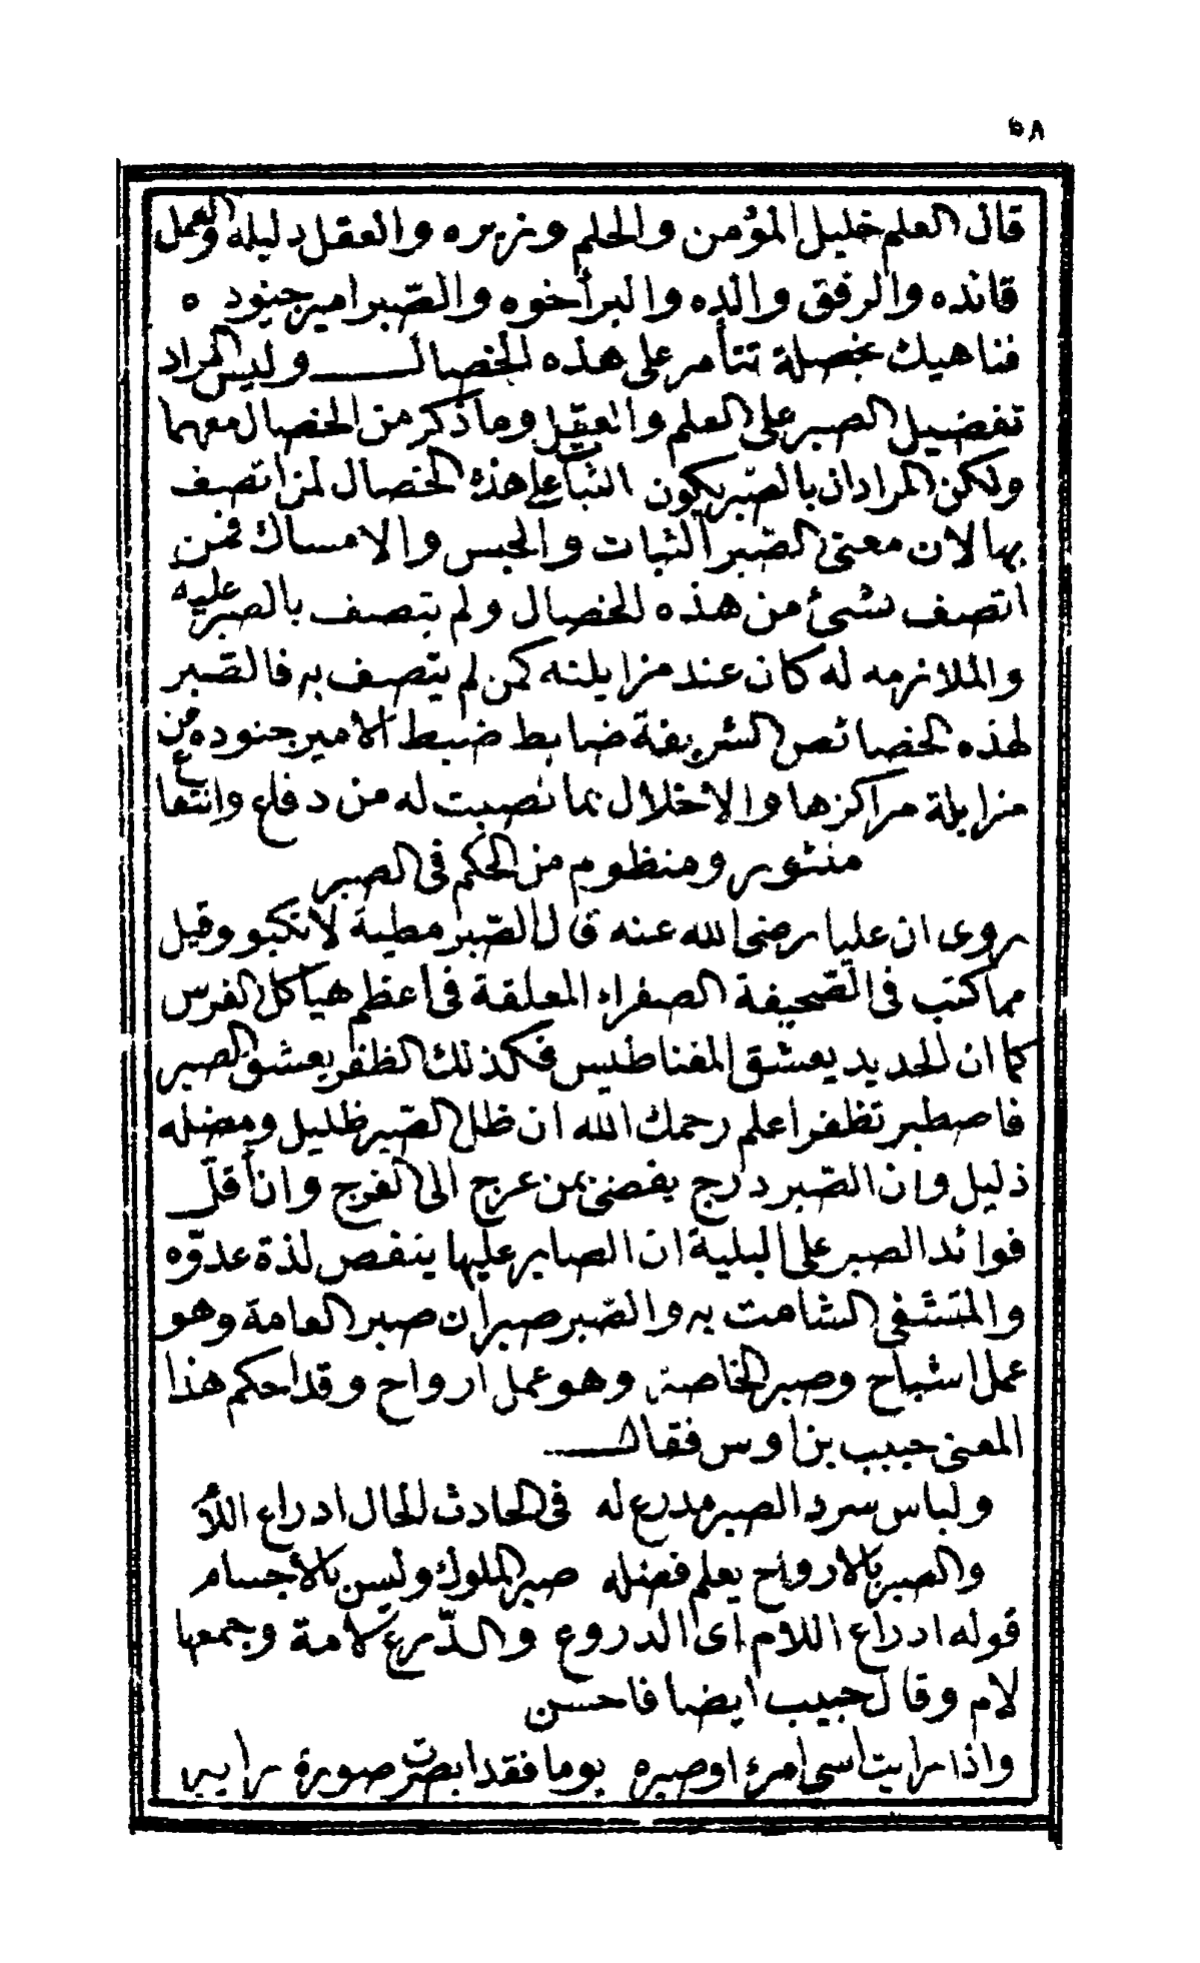 ٥٨
قال العلم خليل المؤمن والحلم وزيره والعقل دليله والعمل
قائده والرفق والده والبر أخوه والصّبر امير جنوده
فناهيك بخصلة تتأمر على هذه الخصال وليس المراد
تفضيل الصبر على العلم والعقل وما ذكر من الخصال معهما
ولكن المراد ان بالصّبر يكون الثبات على هذه الخصال لمن اتصف
بها لان معنى الصّبر الثبات والحبس والامساك فمن
اتصف بشئ من هذه الخصال ولم يتصف بالصبر عليه
والملازمه له كان عند مزايلته كمن لم يتصف به فالصّبر
لهذه الخصائص الشريفة ضابط ضبط الامير جنوده من
مزايلة مراكزها والاخلال بما نصبت له من دفاع وانتفاع
منثور ومنظوم من الحكم فى الصبر
روى ان عليا رضى الله عنه قال الصّبر مطية لا تكبو وقيل
مما كتب فى الصّحيفة الصفراء المعلقة فى أعظم هياكل الفرس
كما ان الحديد يعشق المغناطيس فكذلك الظفر يعشق الصبر
فاصطبر تظفر اعلم رحمك الله ان ظل الصّبر ظليل ومضله
ذليل وان الصّبر درج يفضى بمن عرج الى الفرج وان أقلّ
فوائد الصبر على البلية ان الصابر عليها ينغص لذة عدوّه
والمتشفى الشامت به والصّبر صبران صبر العامة وهو
عمل اشباح وصبر الخاصة وهو عمل ارواح وقد احكم هذا
المعنى حبيب بن اوس فقال
ولباس سرد الصبر مدرع له فى الحادث الجال ادراع اللأم
والصبر بالارواح يعلم فضله صبر الملوك وليس بالأجسام
قوله ادراع اللام اى الدروع والدّرع لامة وجمعها
لام وقال حبيب ايضا فاحسن
واذا رايت اسى امرء او صبره يوما فقد ابصرت صورة رايه